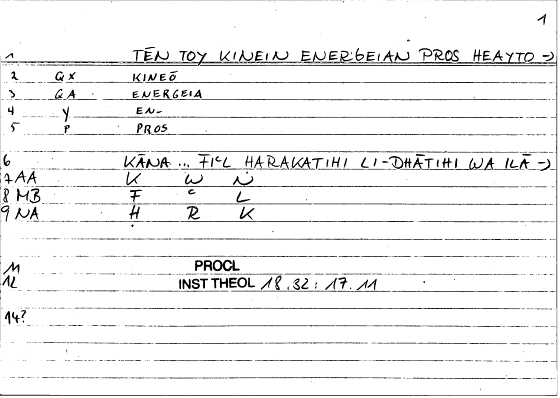 1
1 TĒN TOY KINEIN ENERGEIAN PROS HEAYTO →
2 QX KINEŌ
3 QA ENERGEIA
4 Y EN-
5 P PROS
6 KĀNA ... FIʿL ḤARAKATIHI LI-DHĀTIHI WA ILĀ →
7 AA K W N
8 MB F ʿ L
9 NA Ḥ R K
11 PROCL
12 INST THEOL 18.32: 17.11
14?